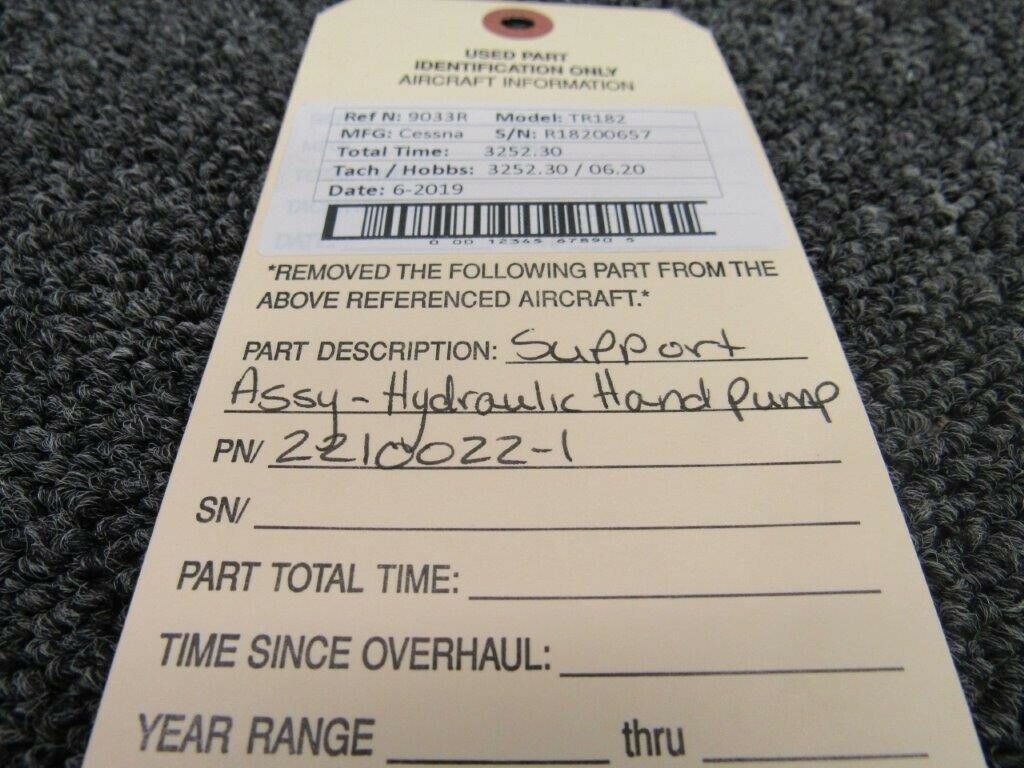 USED PART
IDENTIFICATION ONLY
AIRCRAFT INFORMATION
Ref N: 9033R Model: TR182
MFG: Cessna S/N: R18200657
Total Time: 3252.30
Tach / Hobbs: 3252.30 / 06.20
Date: 6-2019
0 00 12345 67890 5
*REMOVED THE FOLLOWING PART FROM THE
ABOVE REFERENCED AIRCRAFT.*
PART DESCRIPTION: Support
Assy - Hydraulic Hand Pump
PN/ 2210022-1
SN/
PART TOTAL TIME:
TIME SINCE OVERHAUL:
YEAR RANGE thru